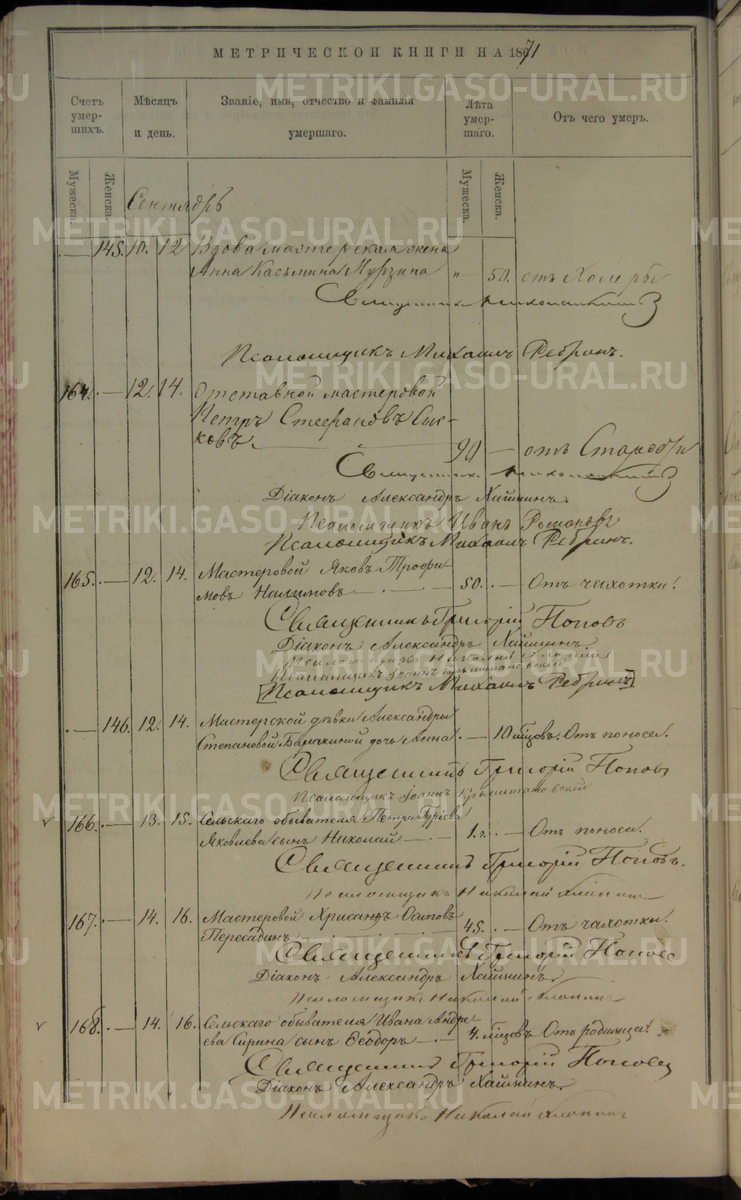 МЕТРИЧЕСКОЙ КНИГИ НА 1871
Счетъ умерших.
Мѣсяцъ и день.
Званіе, имя, отчество и фамилія умершаго.
Лѣта умершаго.
Отъ чего умеръ.
Мужеска.
Женска.
Мужеска.
Женска.
Сентябрь
— 145. 10. 12 Вдова мастерская жена
Анна Касьянова Мурзина " 50. отъ Холеры
Священникъ
Псаломщикъ Михаилъ Ребринъ.
164. — 12. 14. Отставной мастеровой
Петръ Стефановъ Сыс-
ковъ 90 — отъ Старости
Священникъ
Діаконъ Александръ Хайнинъ
Псаломщикъ Иванъ
Псаломщикъ Михаилъ Ребринъ.
165. — 12. 14. Мастеровой Яковъ Трофи-
мовъ Налимовъ 50. — Отъ чахотки.
Священникъ Григорій Поповъ
Діаконъ Александръ Хайнинъ.
Псаломщикъ Николай
Псаломщикъ Іоаннъ
[Псаломщикъ Михаилъ Ребринъ]
— 146. 12. 14. Мастерской дѣвки Александры
Степановой дочь Анна — 10 мѣсцовъ. Отъ поноса.
Священникъ Григорій Поповъ
Псаломщикъ Іоаннъ
166. — 13. 15. Сельскаго обывателя Петра Гурiева
Яковлева сынъ Николай — 1 г. — Отъ поноса.
Священникъ Григорій Поповъ.
Псаломщикъ Николай
167. — 14. 16. Мастеровой Хрисанѳъ Осиповъ
Пересадинъ 45. — Отъ чахотки.
Священникъ Григорій Поповъ
Діаконъ Александръ Хайнинъ
Псаломщикъ Николай
168. — 14. 16. Сельскаго обывателя Ивана Андре-
ева Сирина сынъ Ѳеодоръ — 4. мѣсцовъ Отъ родимца.
Священникъ Григорій Поповъ
Діаконъ Александръ Хайнинъ
Псаломщикъ Николай
METRIKI.GASO-URAL.RU